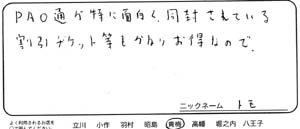 PAO通が特に面白く、同封されている
割引チケット等もかなりお得なので。
ニックネーム トモ
よく利用されるお店を
○で囲んでください。 立川 小作 羽村 昭島 青梅 高幡 堀之内 八王子